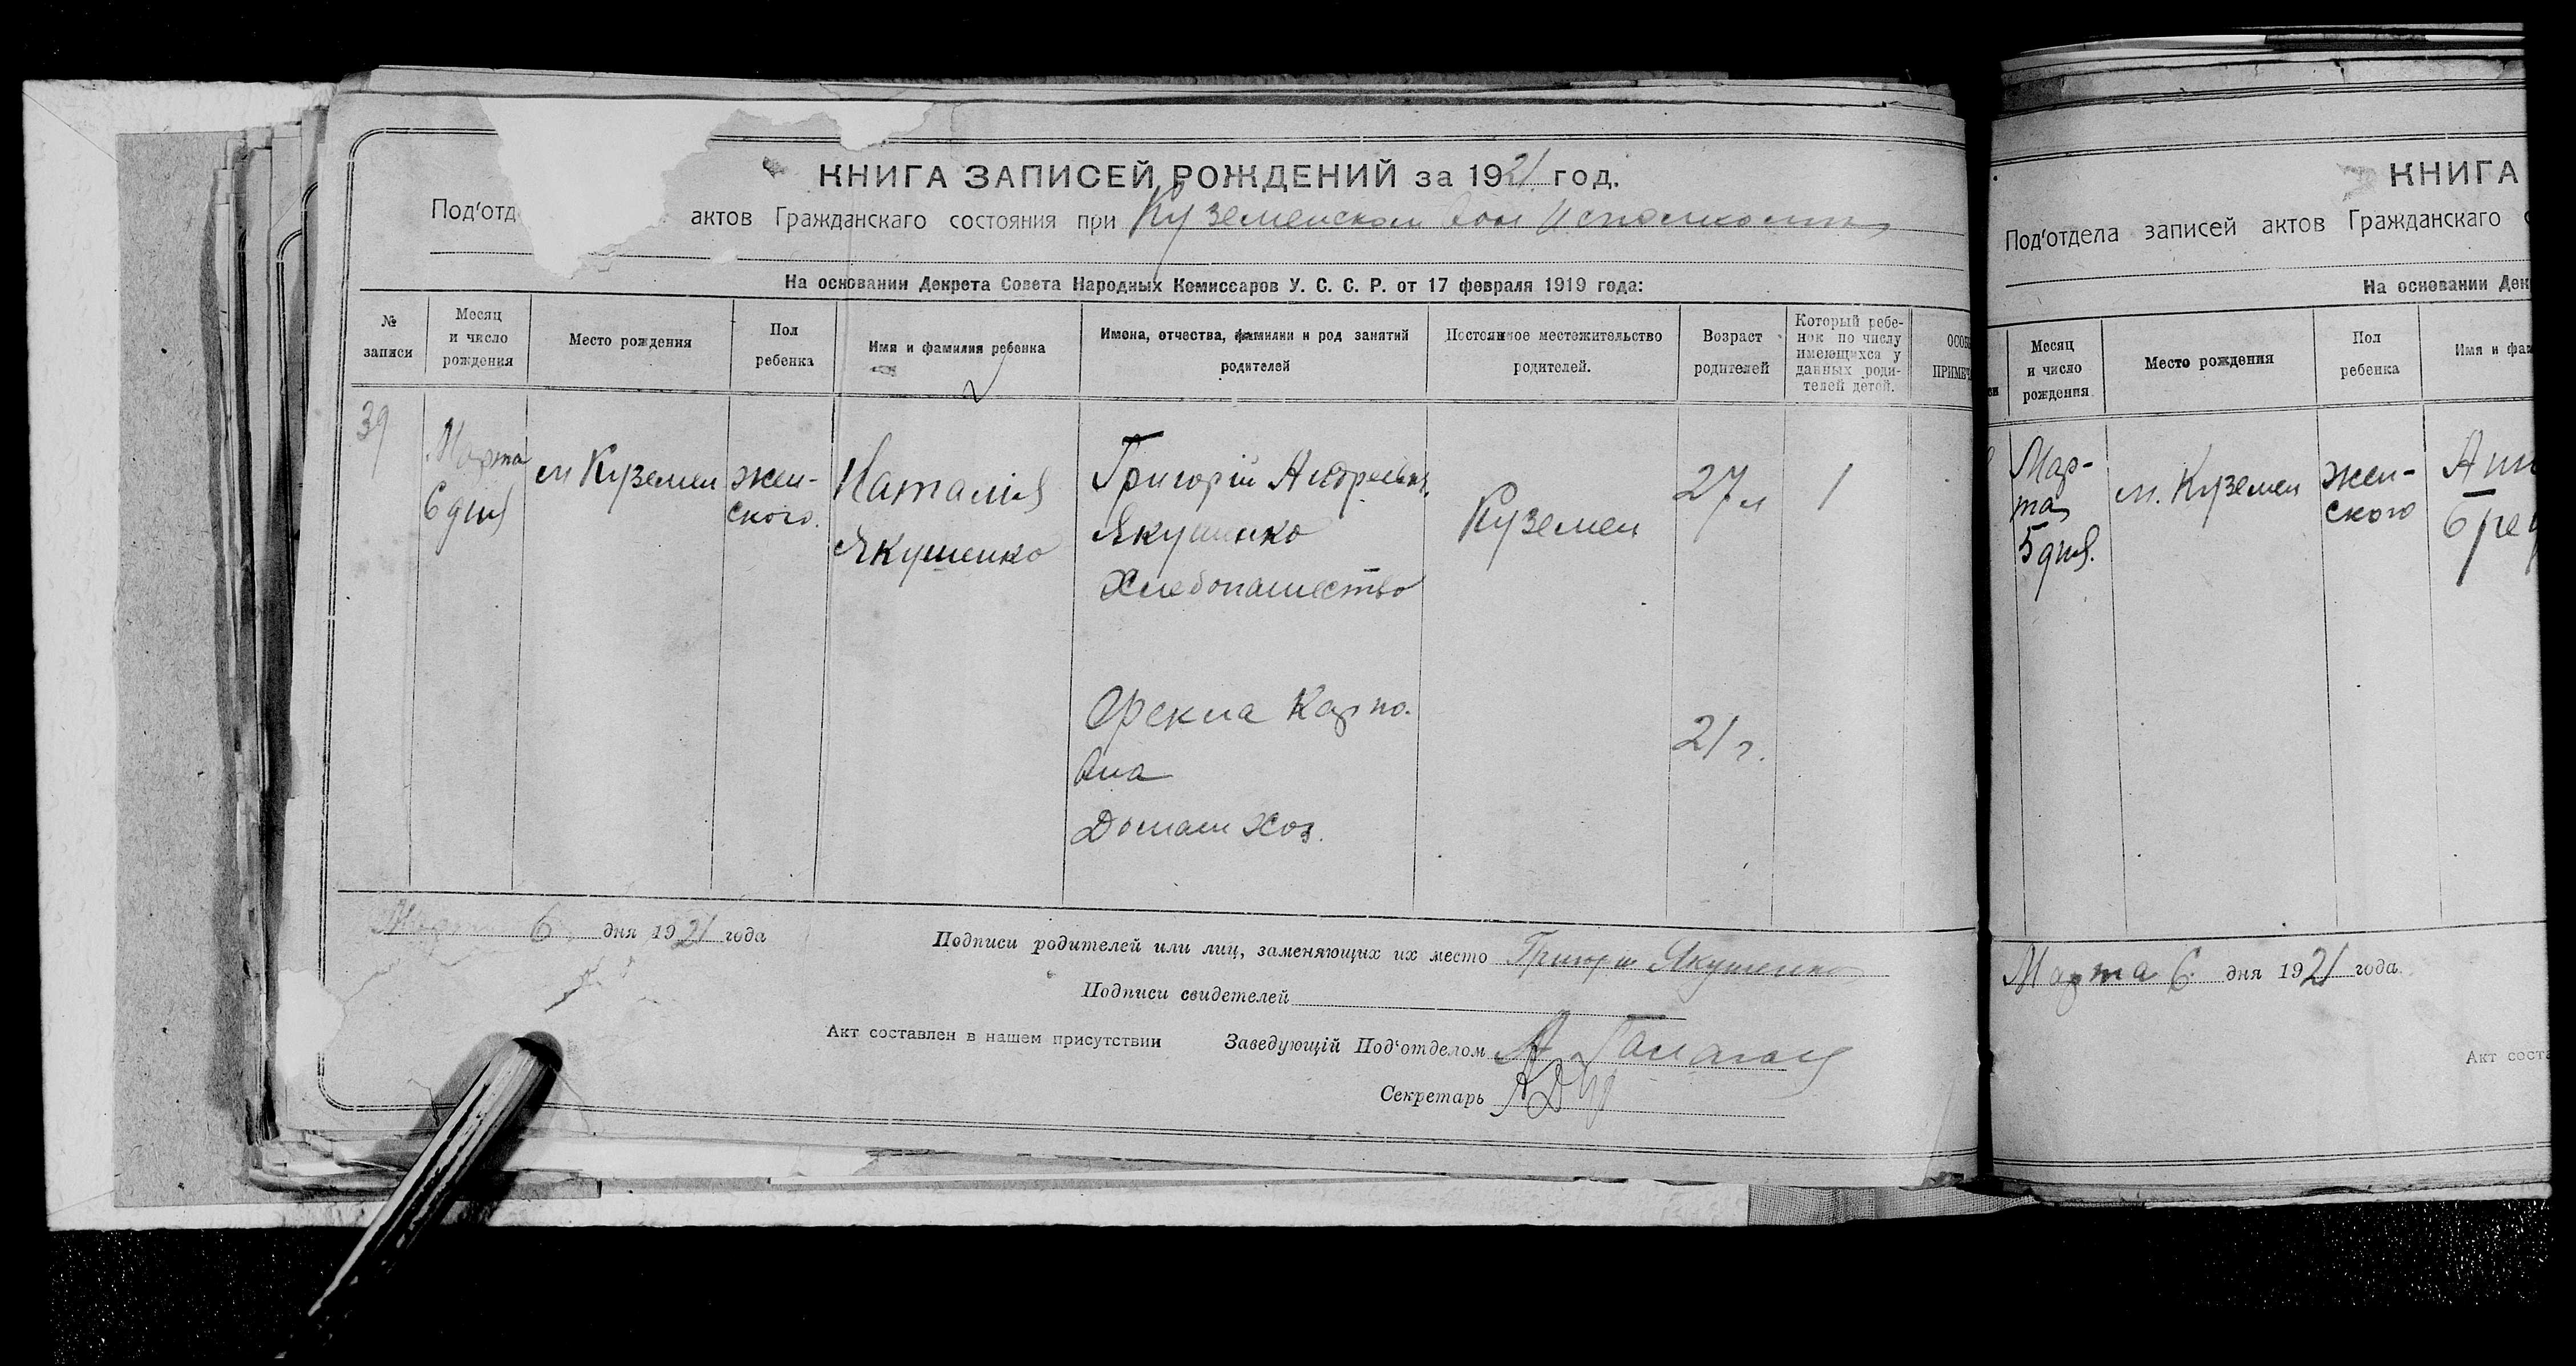 КНИГА ЗАПИСЕЙ РОЖДЕНИЙ за 1921 год.
Под'отд актов Гражданскаго состояния при Куземенском Вол Исполкоми
На основании Декрета Совета Народных Комиссаров У. С. С. Р. от 17 февраля 1919 года:
№ записи
Месяц и число рождения
Место рождения
Пол ребенка
Имя и фамилия ребенка
Имена, отчества, фамилии и род занятий родителей
Постоянное местожительство родителей.
Возраст родителей
Который ребенок по числу имеющихся у данных родителей детей.
ОСОБ
ПРИМЕЧ
39
Марта
6 дня
м Куземен
жен-
ского.
Наталия
Якушенко
Григорій Андреевич
Якушенко
Хлебопашество
Куземен
27 л
1
Фекла Карпо-
вна
Домаш Хоз.
21 г.
Марта 6 дня 1921 года
Подписи родителей или лиц, заменяющих их место Григорій Якушенко
Подписи свидетелей
Акт составлен в нашем присутствии Заведующій Под'отделом
Секретарь
КНИГА
Под'отдела записей актов Гражданскаго
На основании Дек
Месяц и число рождения
Место рождения
Пол ребенка
Имя и фам
Мар-
та
5 дня.
м. Куземен
жен-
ского
Марта 6 дня 1921 года
Акт соста